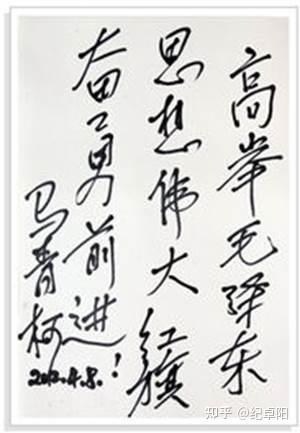 高举毛泽东
思想伟大红旗
奋勇前进!
马青柯
2012.4.8.
知乎 @纪卓阳